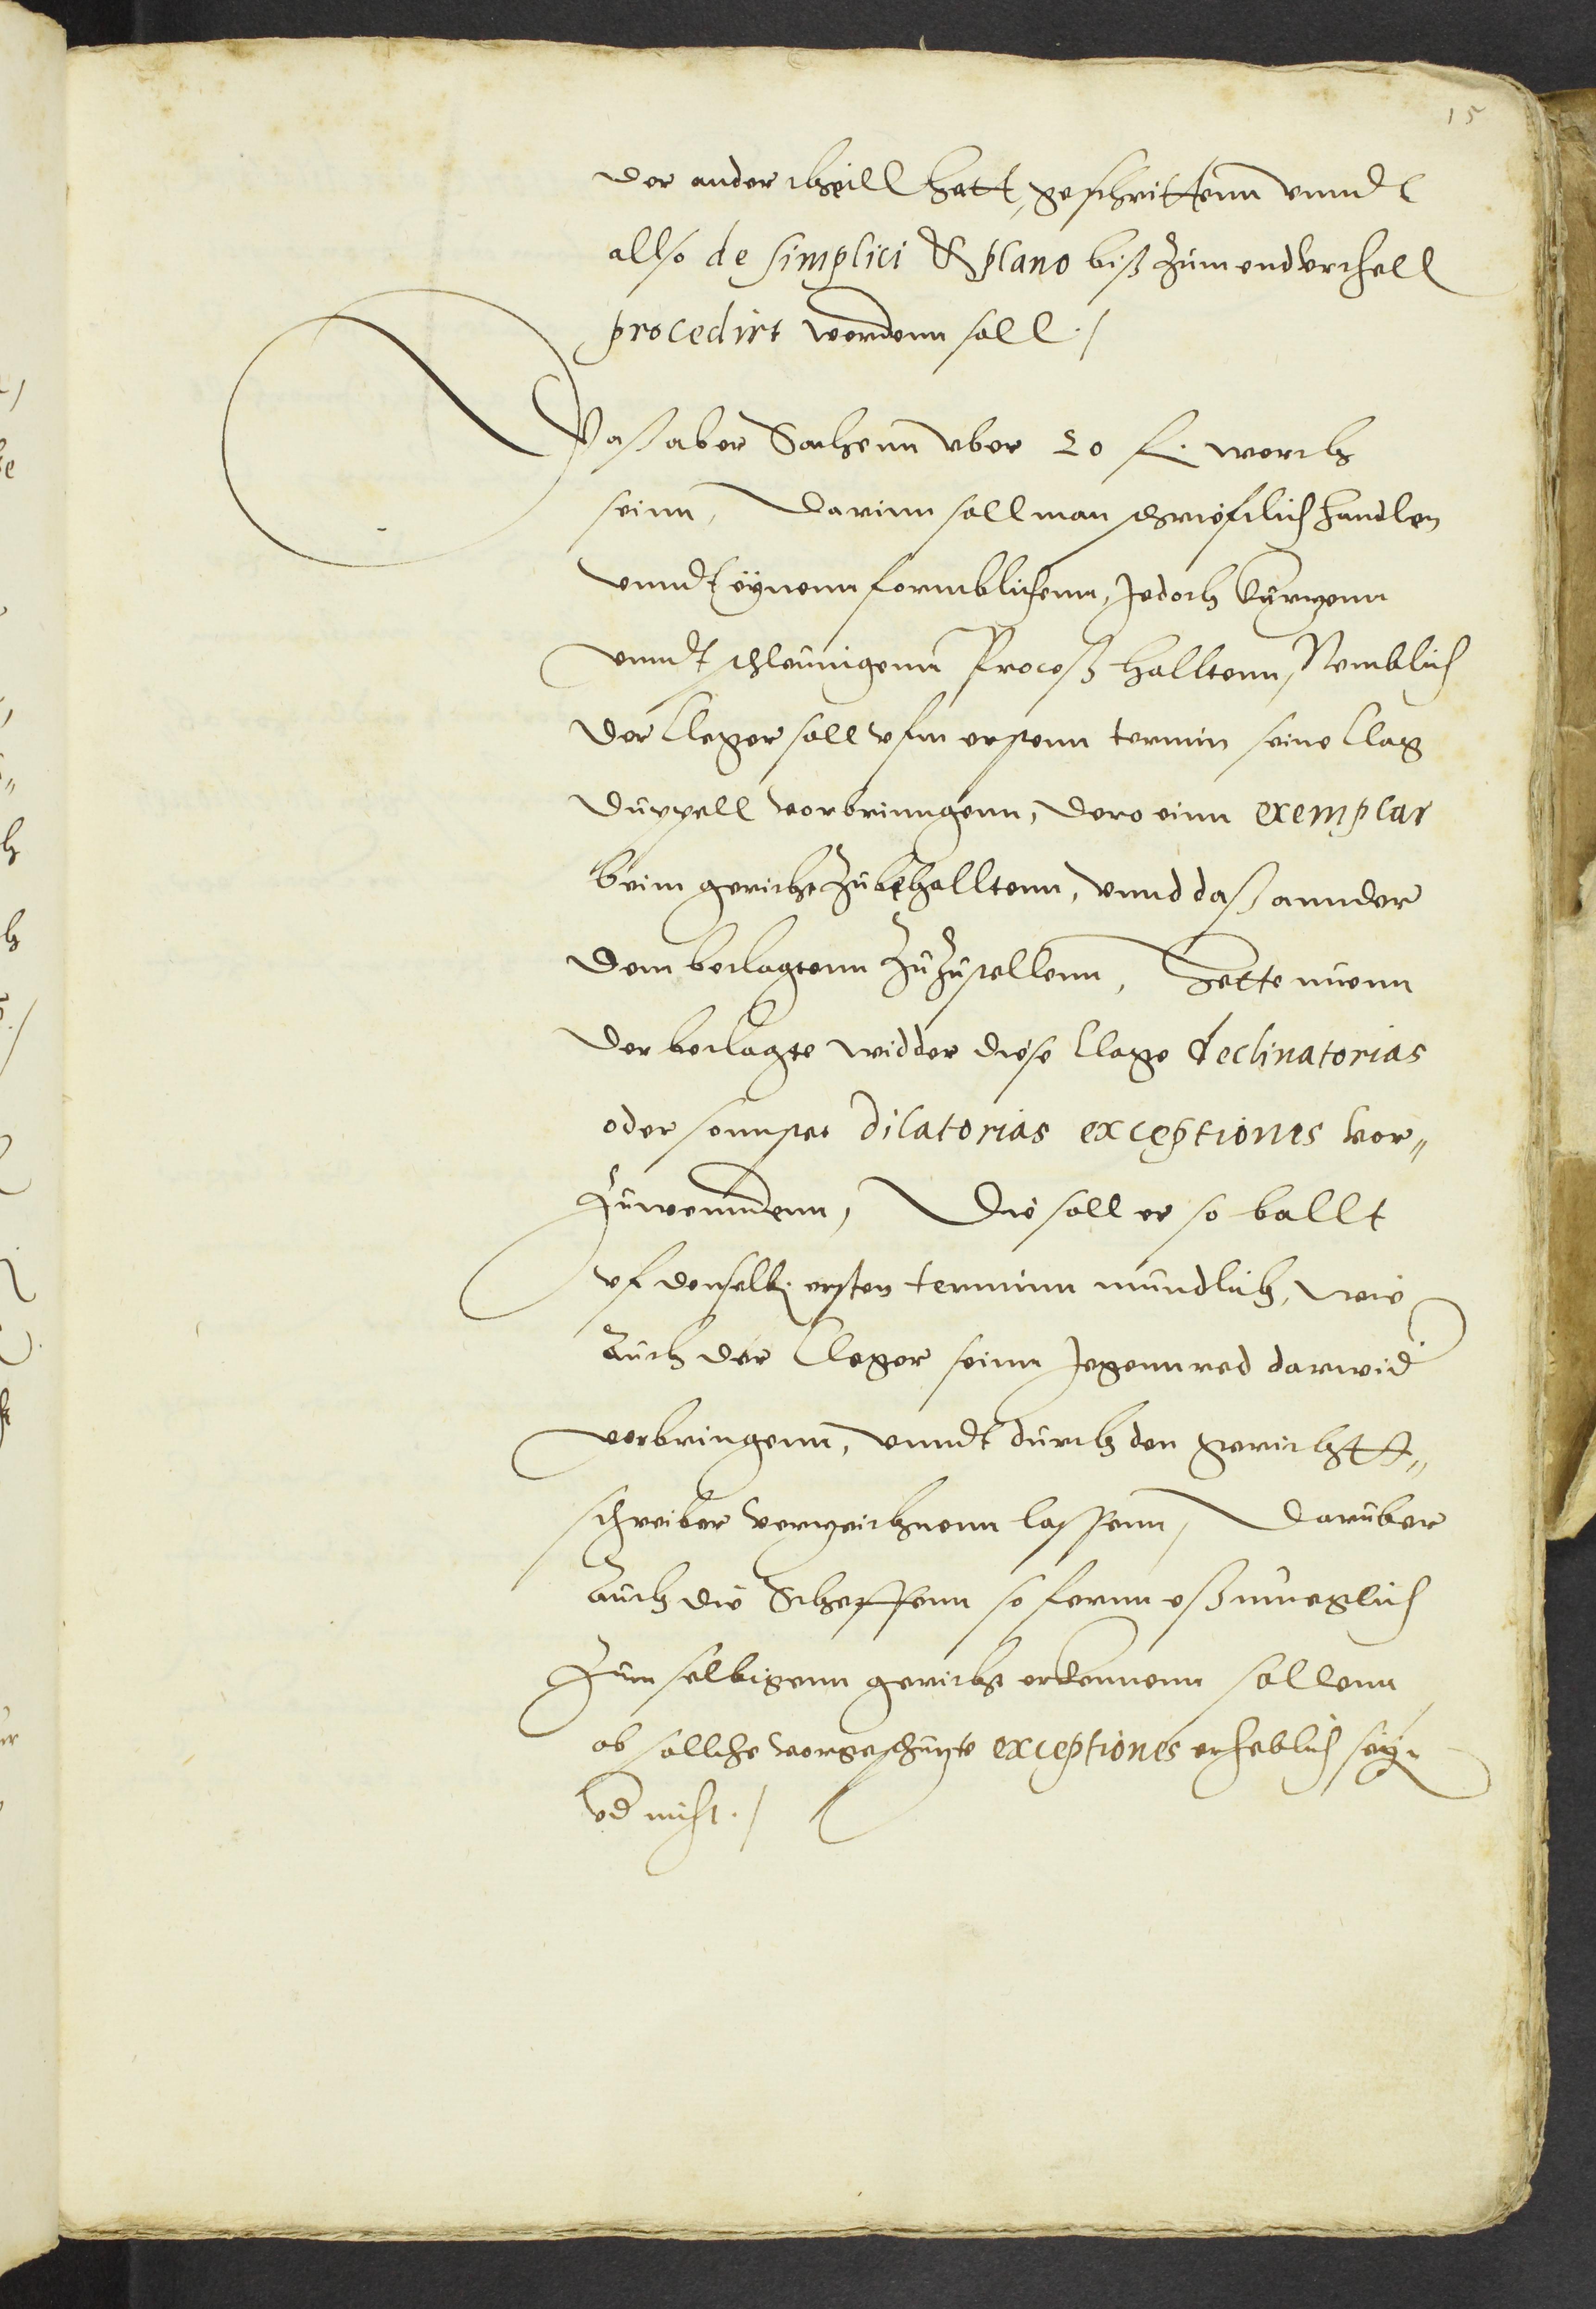 15
der ander theill hatt, geschrittenn vnndt
allso de simplici & plano biß zum endvrthell
procedirt werdenn soll./
Waß aber Sachenn vber 20 fl. werth
seinn, darinn soll man schrifftlich handlen
vnndt eÿnenn formblichenn, Jedoch kurtzenn
vnndt schleunigenn Proceß halltenn, Nemblich
der Cleger soll vfm erstenn termin seine Clag
duppell vorbrinngenn, dero einn exemplar
beim gericht zubehalltenn, vnnd daß annder
dem beclagtenn zuzustellenn, Hette nuenn
der beclagte widder diese Clage declinatorias
oder sonnsten dilatorias exceptiones vor„
zuwenndenn, Die soll er so ballt
vf denselb. ersten terminn mundlich, wie
auch der Cleger seinn Jegennred darwid
vorbringenn, vnndt durch den gerichtt„
schreiber verzeichnenn lassenn, Darüber
auch die Scheffenn so fernn eß mueglich
Zum selbigenn gericht erkennenn sollenn
ob sollche vorgeschutzte exceptiones erheblich seÿn
od nicht./